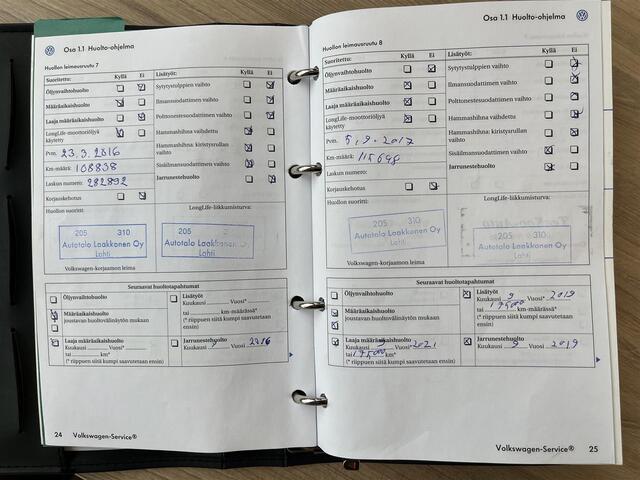 Osa 1.1 Huolto-ohjelma
Huollon leimausruutu 7
Suoritettu: Kyllä Ei
Öljynvaihtohuolto
Määräaikaishuolto
Laaja määräaikaishuolto
LongLife-moottoriöljyä
käytetty
Pvm. 23.3.2016
Km-määrä: 108838
Laskun numero: 282892
Korjauskehotus
Huollon suoritti:
Lisätyöt: Kyllä Ei
Sytytystulppien vaihto
Ilmansuodattimen vaihto
Polttonestesuodattimen vaihto
Hammashihna vaihdettu
Hammashihna: kiristysrullan
vaihto
Sisäilmansuodattimen vaihto
Jarrunestehuolto
LongLife-liikkumisturva:
205 310
Autotalo Laakkonen Oy
Lahti
205
Autotalo Laakkonen Oy
Lahti
Volkswagen-korjaamon leima
Seuraavat huoltotapahtumat
Öljynvaihtohuolto
Määräaikaishuolto
joustavan huoltovälinäytön mukaan
Laaja määräaikaishuolto
Kuukausi Vuosi*
tai km*
(* riippuen siitä kumpi saavutetaan ensin)
Lisätyöt
Kuukausi Vuosi*
tai km-määrässä*
(* riippuen siitä kumpi saavutetaan
ensin)
Jarrunestehuolto
Kuukausi Vuosi 2016
24 Volkswagen-Service®
Osa 1.1 Huolto-ohjelma
Huollon leimausruutu 8
Suoritettu: Kyllä Ei
Öljynvaihtohuolto
Määräaikaishuolto
Laaja määräaikaishuolto
LongLife-moottoriöljyä
käytetty
Pvm. 5.9.2017
Km-määrä:
Laskun numero:
Korjauskehotus
Huollon suoritti:
Lisätyöt: Kyllä Ei
Sytytystulppien vaihto
Ilmansuodattimen vaihto
Polttonestesuodattimen vaihto
Hammashihna vaihdettu
Hammashihna: kiristysrullan
vaihto
Sisäilmansuodattimen vaihto
Jarrunestehuolto
LongLife-liikkumisturva:
205 310
Autotalo Laakkonen Oy
Lahti
205 310
Autotalo Laakkonen Oy
Lahti
Volkswagen-korjaamon leima
Seuraavat huoltotapahtumat
Öljynvaihtohuolto
Määräaikaishuolto
joustavan huoltovälinäytön mukaan
Laaja määräaikaishuolto
Kuukausi Vuosi* 2021
tai km*
(* riippuen siitä kumpi saavutetaan ensin)
Lisätyöt
Kuukausi 9 Vuosi* 2019
tai km-määrässä*
(* riippuen siitä kumpi saavutetaan
ensin)
Jarrunestehuolto
Kuukausi 9 Vuosi 2019
Volkswagen-Service® 25